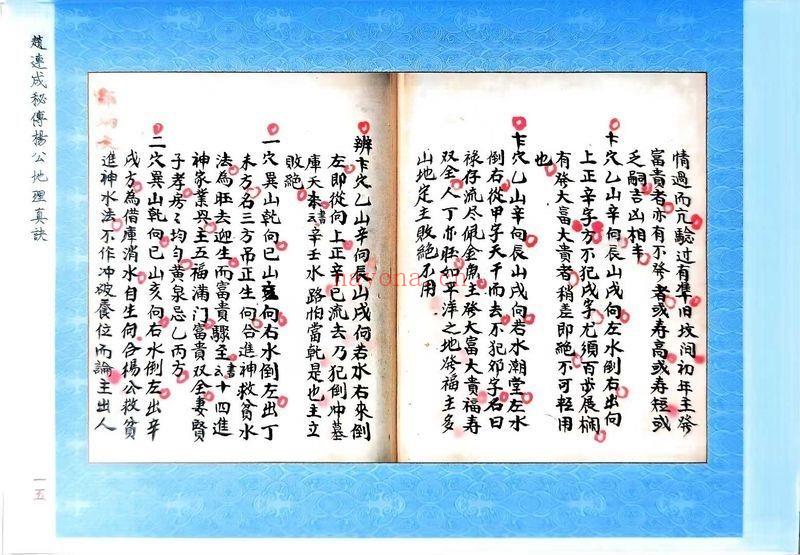 趙連成秘傳楊公地理真訣
情過而亢驗过有隼旧坟间初年主發
富貴者亦有不發者或寿高或寿短或
乏嗣吉凶相半
卞穴乙山辛向辰山戌向左水倒右出向
上正辛字方不犯戌字尤須百步展欄
有發大富大貴者稍差即絕不可輕用
也
卞穴乙山辛向辰山戌向若水潮堂左水
倒右從甲字天干而去不犯夘字名曰
祿存流尽佩金魚主發大富大貴福寿
双全人丁亦旺如平洋之地發福主多
山地定主敗絕不用
辨卞穴乙山辛向辰山戌向若水右來倒
左即從向上正辛巳流去乃犯倒冲墓
庫夭本云書辛壬水路怕當乾是也主立
敗絕
一穴異山乾向巳山亥向右水倒左出丁
未方名三方吊正生向合進神救貧水
法為旺去迎生而富貴驟至云書十四進
神家業與主五福滿门富貴双全妻賢
子孝房房均匀黄泉忌乙丙方
二穴異山乾向巳山亥向右水倒左出辛
戌方為借庫消水自生向合楊公救貧
進神水法不作冲破養位而論主出人
一五
nayona.cn